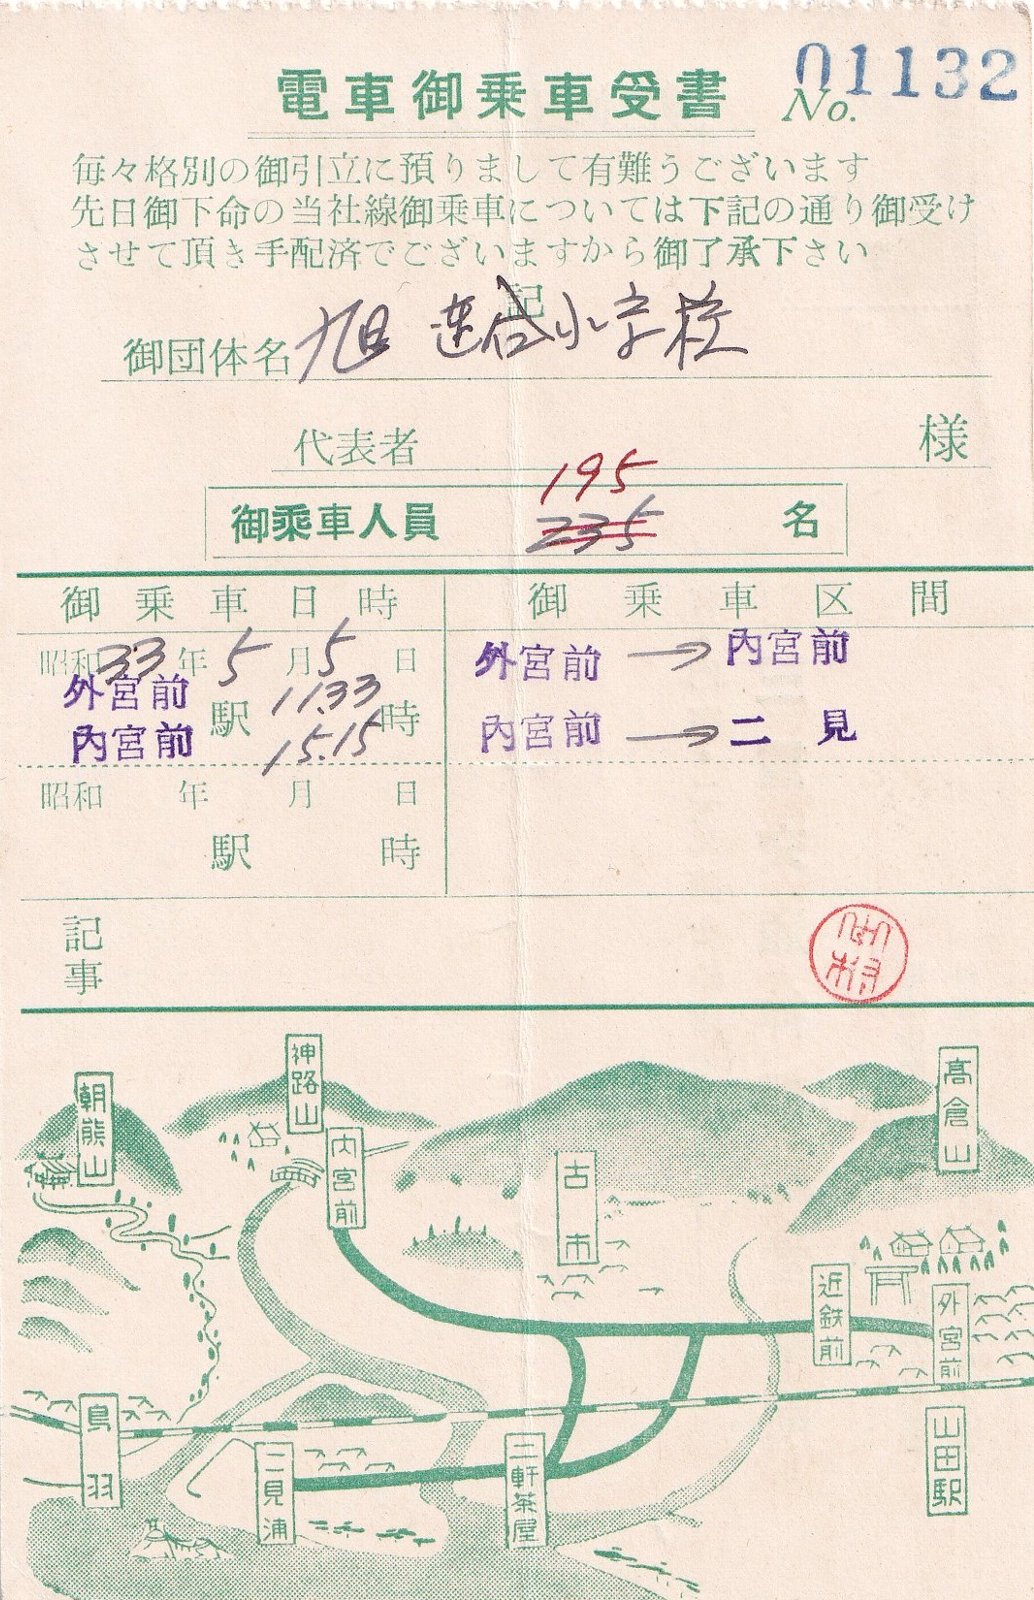 01132
電車御乗車受書 No.
毎々格別の御引立に預りまして有難うございます
先日御下命の当社線御乗車については下記の通り御受け
させて頂き手配済でございますから御了承下さい
記
御団体名 旭 小学校
代表者 様
195
御乗車人員 235 名
御乗車日時 御乗車区間
昭和33年5月5日 外宮前 → 內宮前
外宮前 駅 11.33 時
內宮前 15.15 內宮前 → 二見
昭和 年 月 日
駅 時
記事
神路山
朝熊山
高倉山
内宮前
古市
近鉄前
外宮前
鳥羽
二見浦
二軒茶屋
山田駅